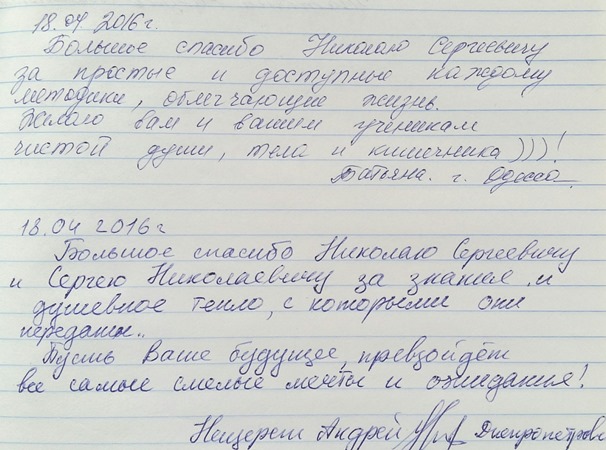 18.04 2016г.
Большое спасибо Николаю Сергеевичу
за простые и доступные каждому
методики, облегчающие жизнь.
Желаю вам и вашим ученикам
чистой души, тела и кишечника)))!
Татьяна. г. Одесса.
18.04 2016г
Большое спасибо Николаю Сергеевичу
и Сергею Николаевичу за знания и
душевное тепло, с которыми они
переданы..
Пусть Ваше будущее, превзойдёт
все самые смелые мечты и ожидания!
Андрей Днепропетровс